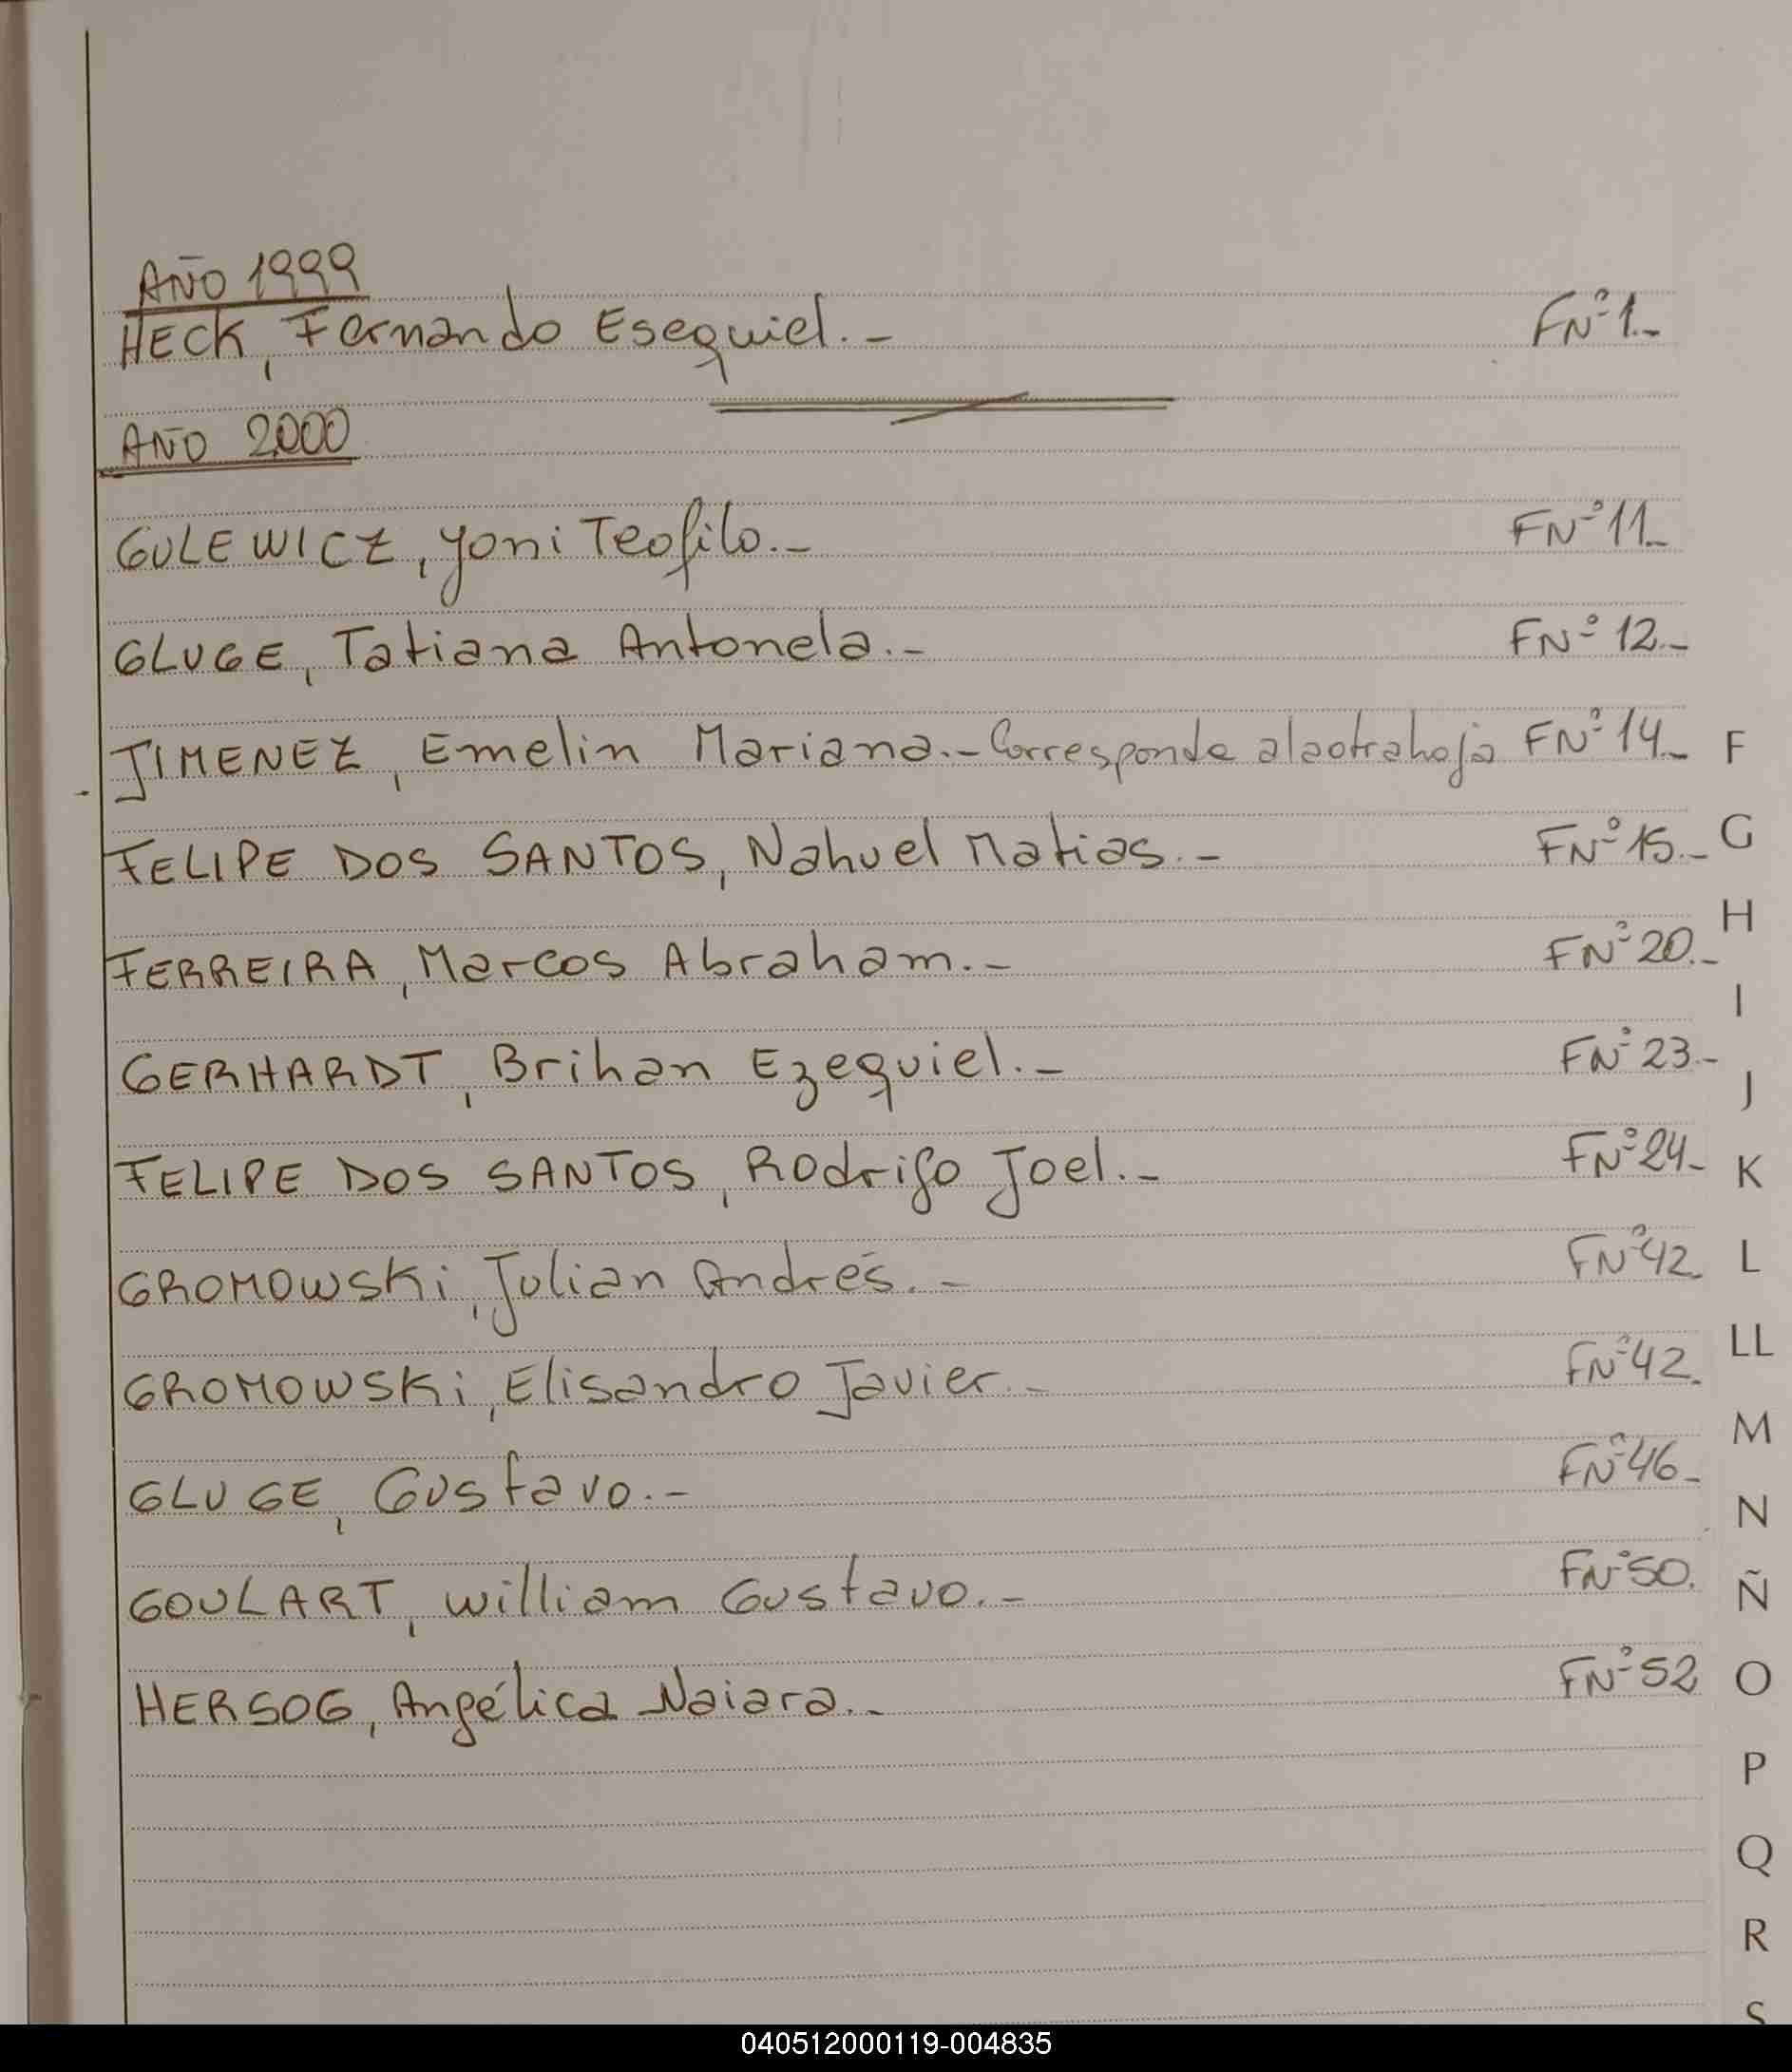 AÑO 1999
HECK, Fernando Esequiel.- FNº1.-
AÑO 2000
GULEWICZ, Yoni Teofilo.- FNº11.-
GLUGE, Tatiana Antonela.- FNº12.-
JIMENEZ, Emelin Mariana.- Corresponde a la otra hoja FNº14.-
FELIPE DOS SANTOS, Nahuel Matias.- FNº15.-
FERREIRA, Marcos Abraham.- FNº20.-
GERHARDT, Brihan Ezequiel.- FNº23.-
FELIPE DOS SANTOS, Rodrigo Joel.- FNº24-
GROMOWSKi, Julian Andrés.- FNº42.
GROMOWSKi, Elisandro Javier.- FNº42.
GLUGE, Gustavo.- FNº46-
GOULART, William Gustavo.- FNº50.
HERSOG, Angélica Naiara.- FNº52
F
G
H
I
J
K
L
LL
M
N
Ñ
O
P
Q
R
S
040512000119-004835